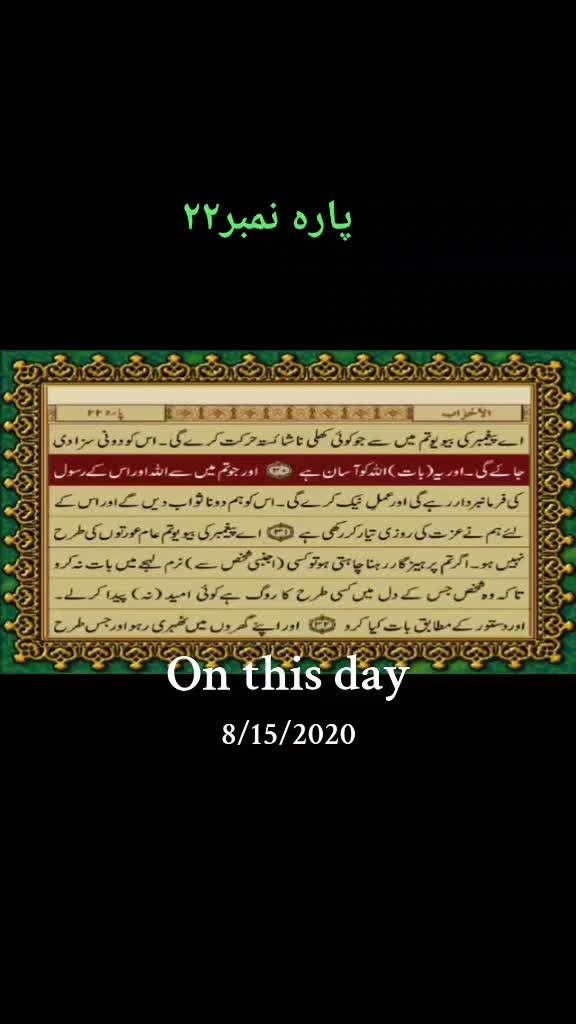 پارہ نمبر۲۲
الاحزاب پارہ ۲۲
اے پیغمبر کی بیویو تم میں سے جو کوئی کھلی ناشائستہ حرکت کرے گی۔ اس کو دونی سزا دی
جائے گی۔ اور یہ (بات) اللہ کو آسان ہے ۳۰ اور جو تم میں سے اللہ اور اس کے رسول
کی فرمانبردار رہے گی اور عمل نیک کرے گی۔ اس کو ہم دونا ثواب دیں گے اور اس کے
لئے ہم نے عزت کی روزی تیار کر رکھی ہے ۳۱ اے پیغمبر کی بیویو تم عام عورتوں کی طرح
نہیں ہو۔ اگر تم پرہیزگار رہنا چاہتی ہو تو کسی (اجنبی شخص سے) نرم لہجے میں بات نہ کرو
تاکہ وہ شخص جس کے دل میں کسی طرح کا روگ ہے کوئی امید (نہ) پیدا کر لے۔
اور دستور کے مطابق بات کیا کرو ۳۲ اور اپنے گھروں میں ٹھہری رہو اور جس طرح
On this day
8/15/2020